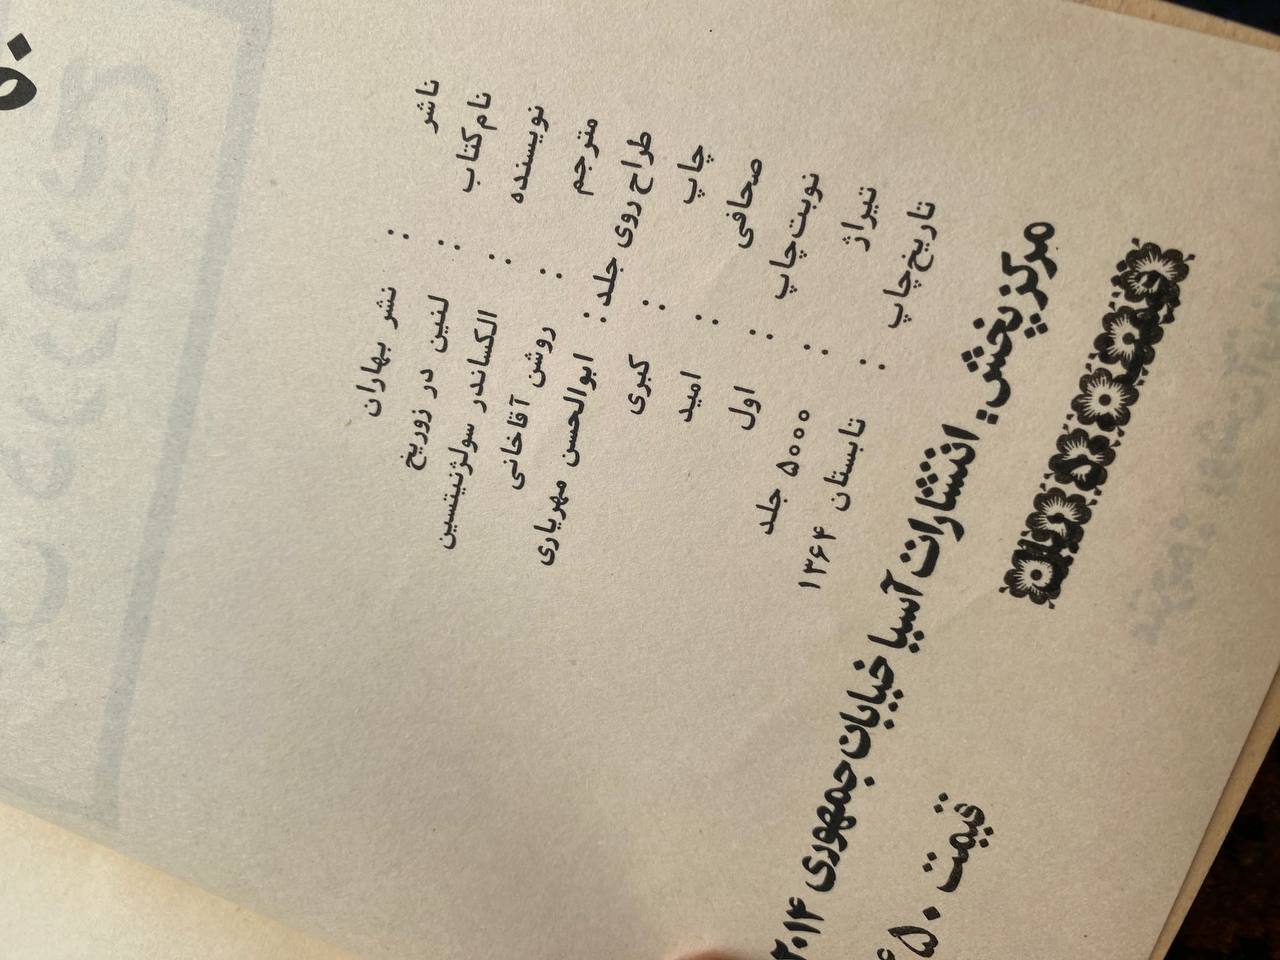 ناشر : نشر بهاران
نام کتاب : لنین در زوریخ
نویسنده : الکساندر سولژنیتسین
مترجم : روشن آقاخانی
طراح روی جلد : ابوالحسن مهریاری
چاپ : کبری
صحافی : امید
نوبت چاپ : اول
تیراژ : ۵۰۰۰ جلد
تاریخ چاپ : تابستان ۱۳۶۴
مرکز پخش: انتشارات آسیا خیابان جمهوری
قیمت